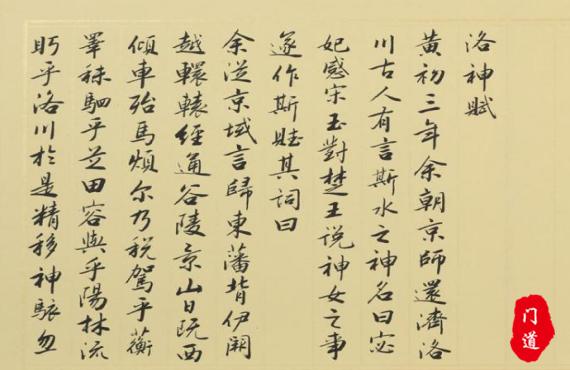 洛神賦
黃初三年余朝京師還濟洛
川古人有言斯水之神名曰宓
妃感宋玉對楚王说神女之事
遂作斯賦其詞曰
余従京域言歸東藩背伊闕
越轘轅經通谷陵景山日既西
傾車殆馬煩尔乃税駕乎蘅
睪秣駟乎芝田容與乎陽林流
眄乎洛川於是精移神駭忽
门道